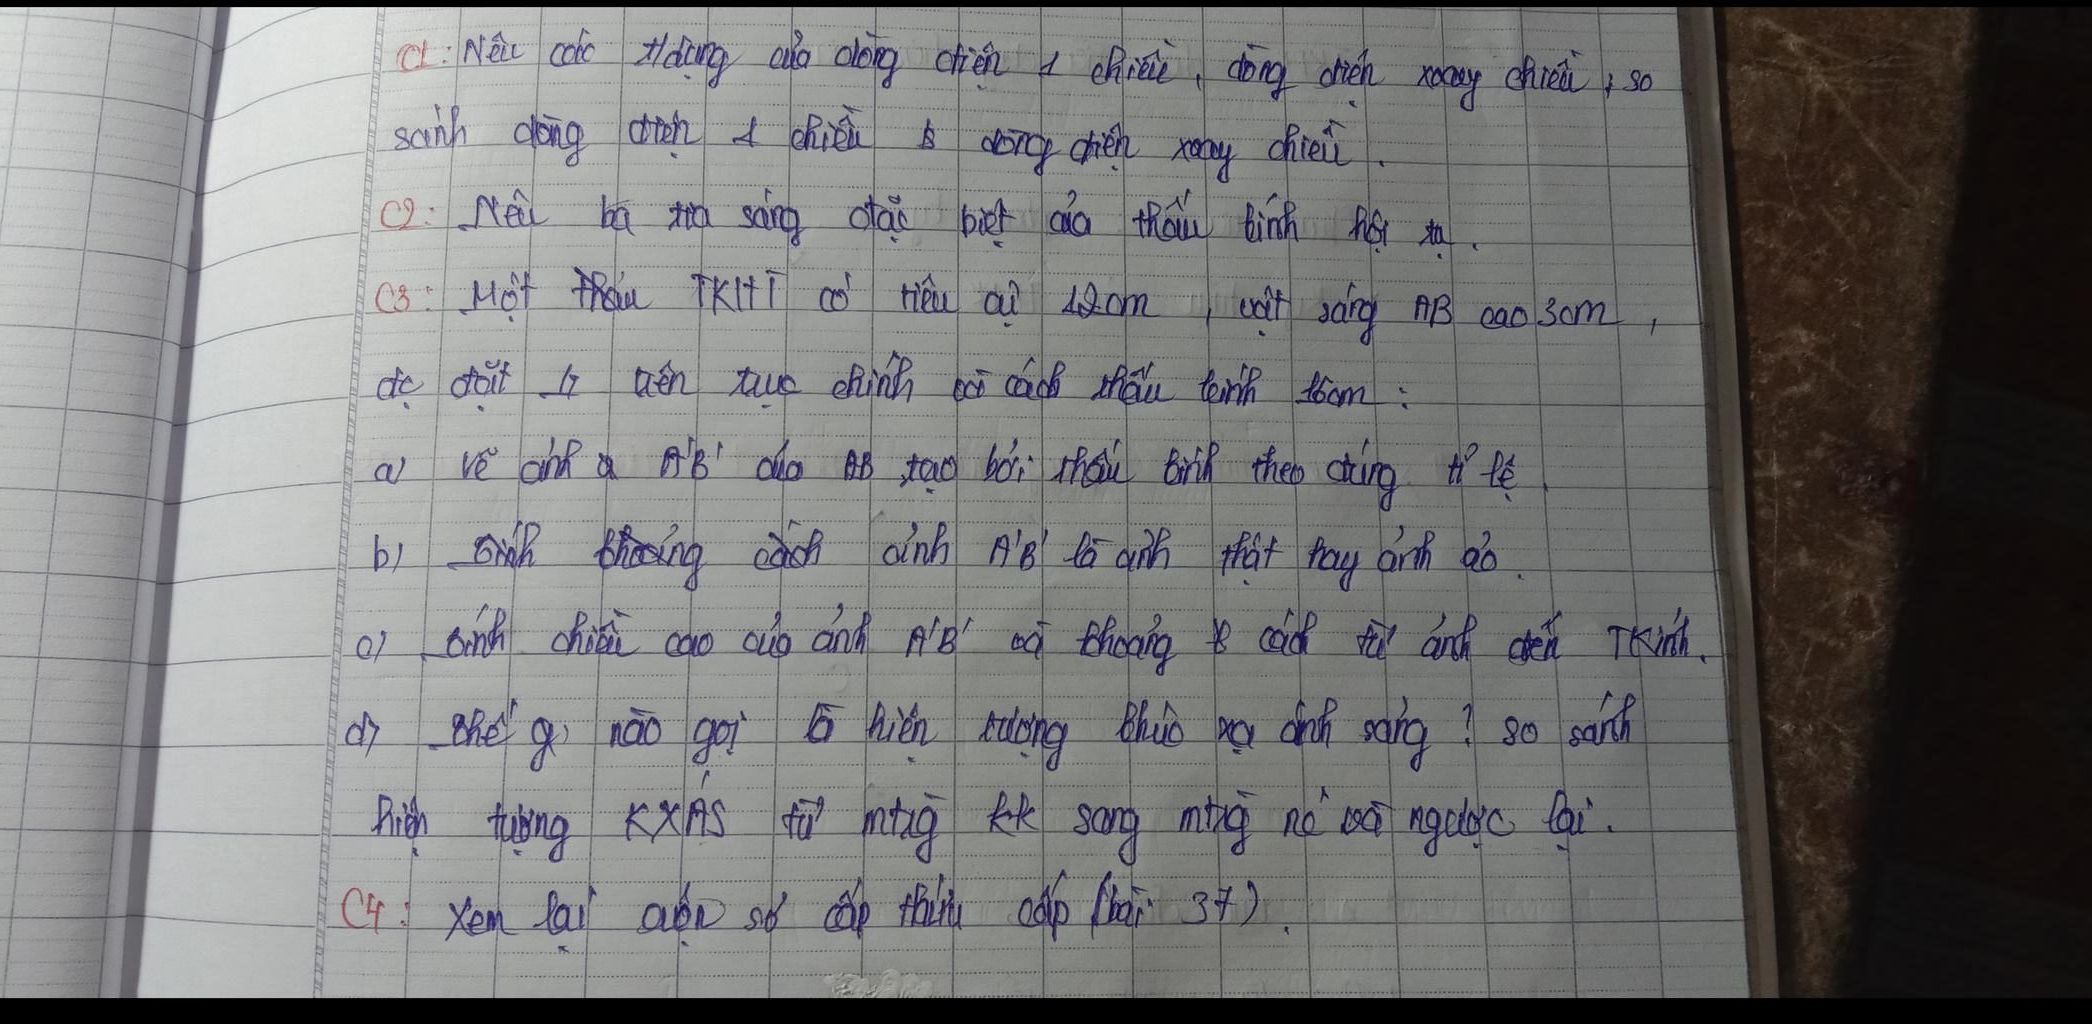 C1: Nêu các t/dụng của dòng điện 1 chiều, dòng điện xoay chiều, so
sánh dòng điện 1 chiều & dòng điện xoay chiều.
C2: Nêu ba tia sáng đặc biệt của thấu kính hội tụ.
C3: Một thấu TKHT có tiêu cự 12cm, vật sáng AB cao 3cm,
đc đặt ⊥ trên trục chính và cách thấu kính 16cm:
a) vẽ ảnh A'B' của AB tạo bởi thấu kính theo đúng tỉ lệ.
b) Tính khoảng cách ảnh A'B' là ảnh thật hay ảnh ảo.
c) Tính chiều cao của ảnh A'B' và khoảng cách từ ảnh đến TKính.
d) Thế nào gọi là hiện tượng khúc xạ ánh sáng? so sánh
hiện tượng KXAS từ mtrg kk sang mtrg nc và ngược lại.
C4: Xem lại cuộn sơ cấp thứ cấp (bài 37).